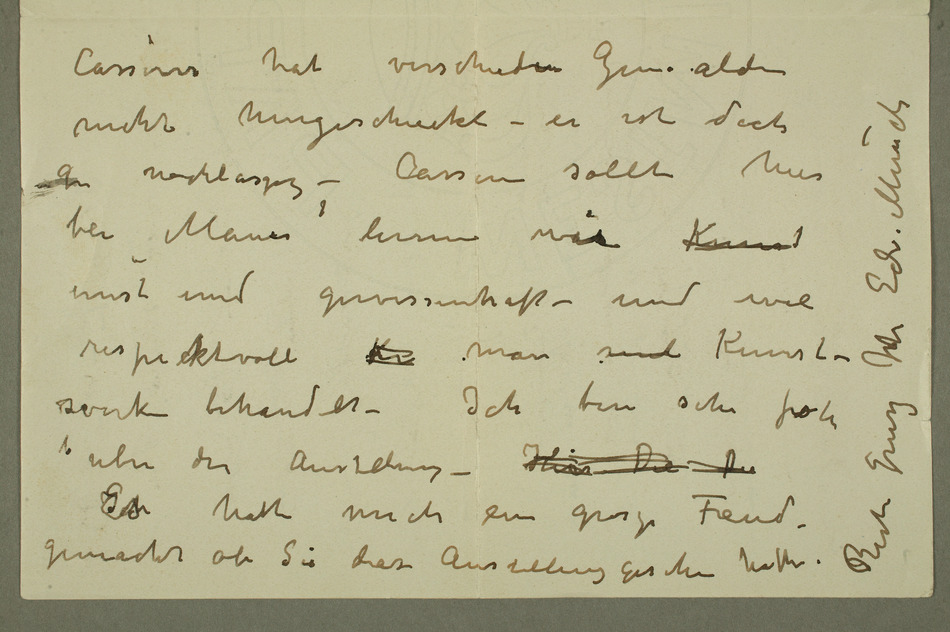 Cassirer hat verschieden Gemälden
nicht hingeschickt – er ist doch
zu nachlässig – Cassirer sollte hier
bei Manes' lernen wie Kunst
ernst und gewissenhaft – und wie
respektvoll man Kunst-
werk behandelt – Ich bin sehr froh
über der Ausstellung –
Es hatte mich ein große Freude
gemacht ob Sie diese Ausstellung gesehen hatte.
Beste Gruss Ihr Edv. Munch